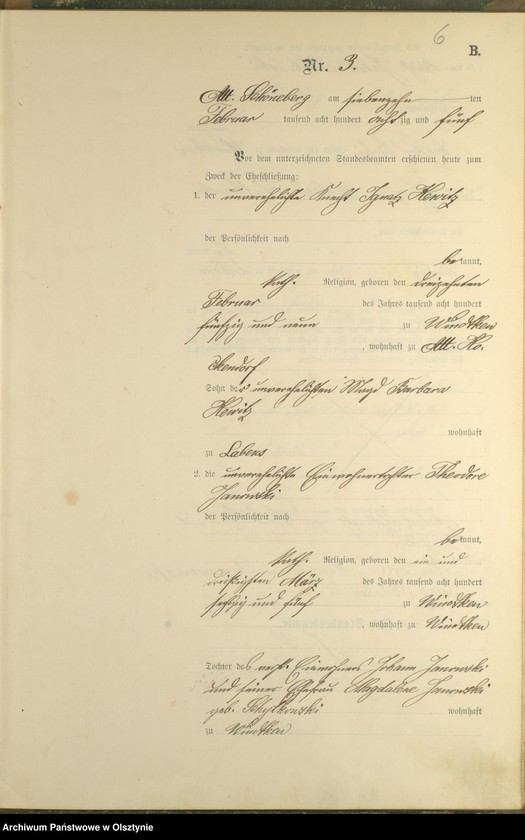 6
B.
Nr. 3.
Alt. Schöneberg am siebenzehn ten
Februar tausend acht hundert achtzig und fünf
Vor dem unterzeichneten Standesbeamten erschienen heute zum
Zweck der Eheschließung:
1. der unverehelichte Knecht Ignatz Hewitz
der Persönlichkeit nach
bekannt,
kath. Religion, geboren den dreizehnten
Februar des Jahres tausend acht hundert
fünfzig und neun zu
, wohnhaft zu Alt. Ko-
ckendorf
Sohn der unverehelichten Magd Barbara
Hewitz
wohnhaft
zu Labens
2. die unverehelichte Einwohnertochter Theodore
Janowski
der Persönlichkeit nach
bekannt,
kath. Religion, geboren den ein und
dreißigsten März des Jahres tausend acht hundert
sechzig und fünf zu
, wohnhaft zu
Tochter des Einwohners Johann Janowski
und seiner Ehefrau Magdalene Janowski
geb. wohnhaft
zu
Archiwum Państwowe w Olsztynie